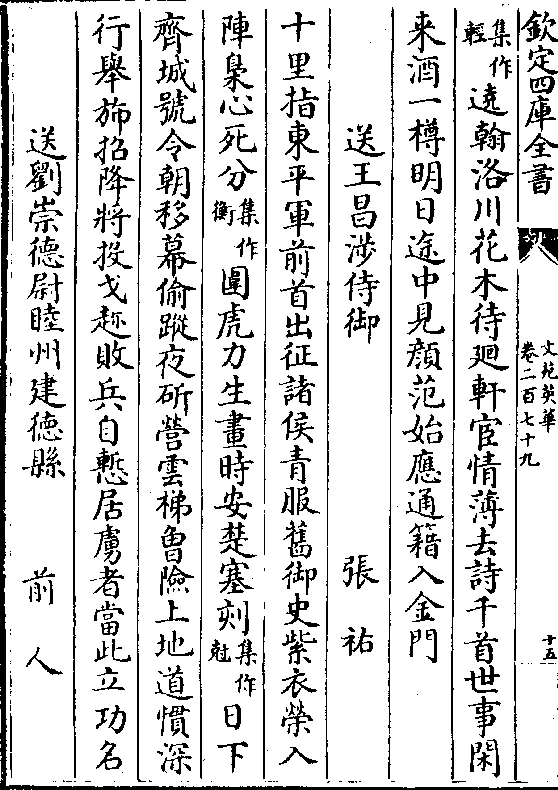 欽定四庫全書
文苑英華
卷二百七十九
十五
集作輕遶翰洛川花木待廻軒宦情薄去詩千首世事閑
来酒一樽明日途中見顔范始應通籍入金門
送王昌涉侍御
張祜
十里指東平軍前首出征諸侯青服舊御史紫衣榮入
陣梟心死分集作衡圍虎力生畫時安楚塞刻集作尅日下
齊城號令朝移幕偷蹤夜斫營雲梯曾險上地道慣深
行舉斾招降將投戈趂敗兵自慙居虜者當此立功名
送劉崇德尉睦州建德縣
前人